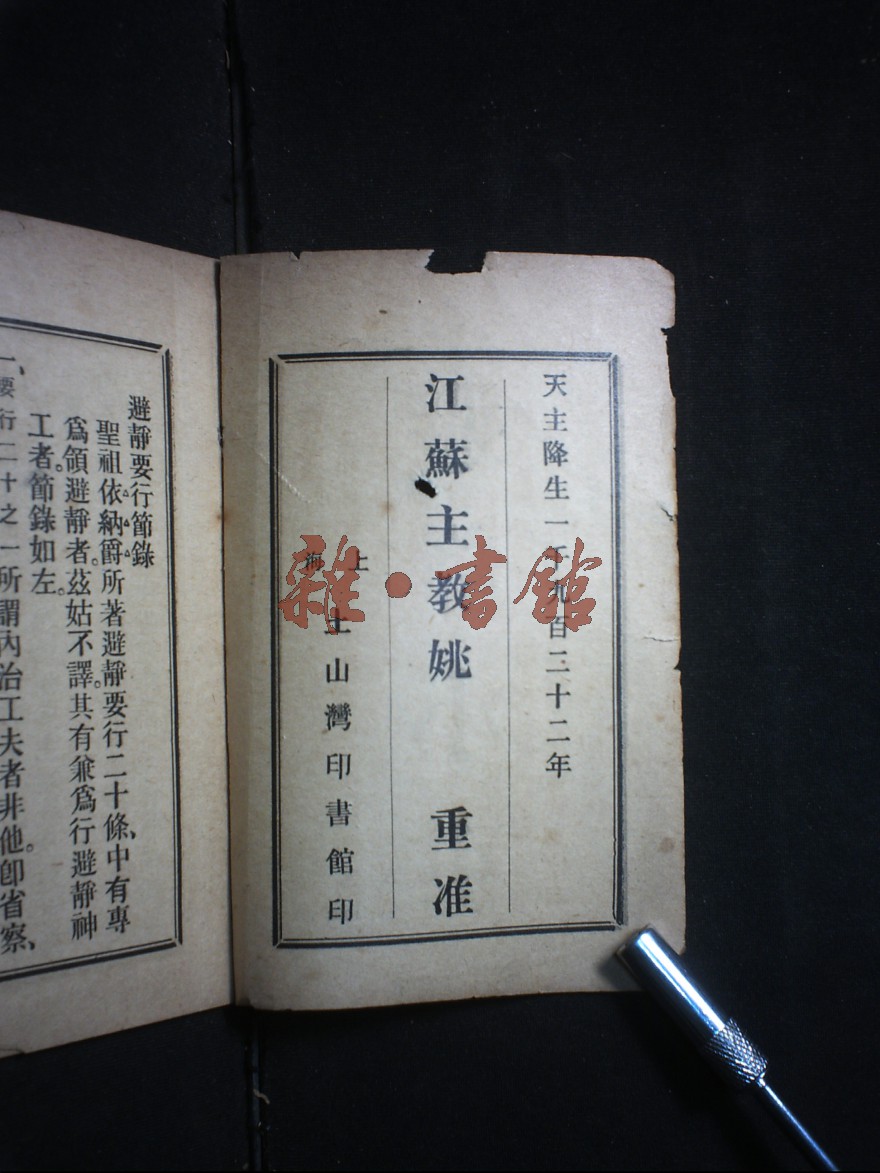 天主降生一千九百三十二年
江蘇主教姚 重准
上海 土山灣印書館印
雜·書館
避靜要行節錄
聖祖依納爵所著避靜要行二十條、中有專
爲領避靜者。茲姑不譯。其有兼爲行避靜神
工者。節錄如左。
一、要行二十之一所謂內治工夫者非他。卽省察、